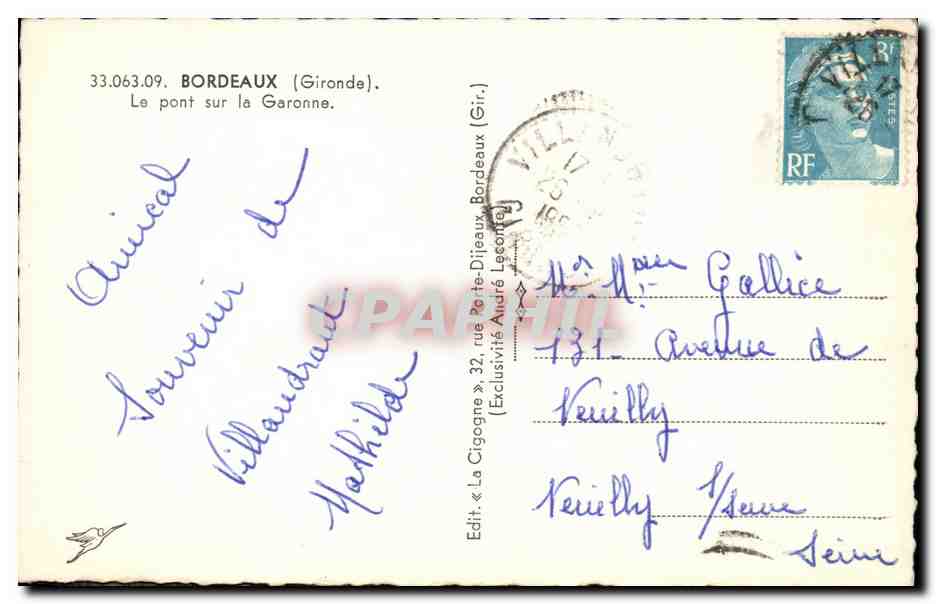 33.063.09. BORDEAUX (Gironde).
Le pont sur la Garonne.
Amical
Souvenir de
Villandraut
Mathilde
Edit. « La Cigogne », 32, rue Porte-Dijeaux, Bordeaux (Gir.)
(Exclusivité André Leconte)
CPAPHIL
VILLAN
17
RF
POSTES
Mr. Mme Gallice
131- Avenue de
Neuilly
Neuilly s/seine
Seine